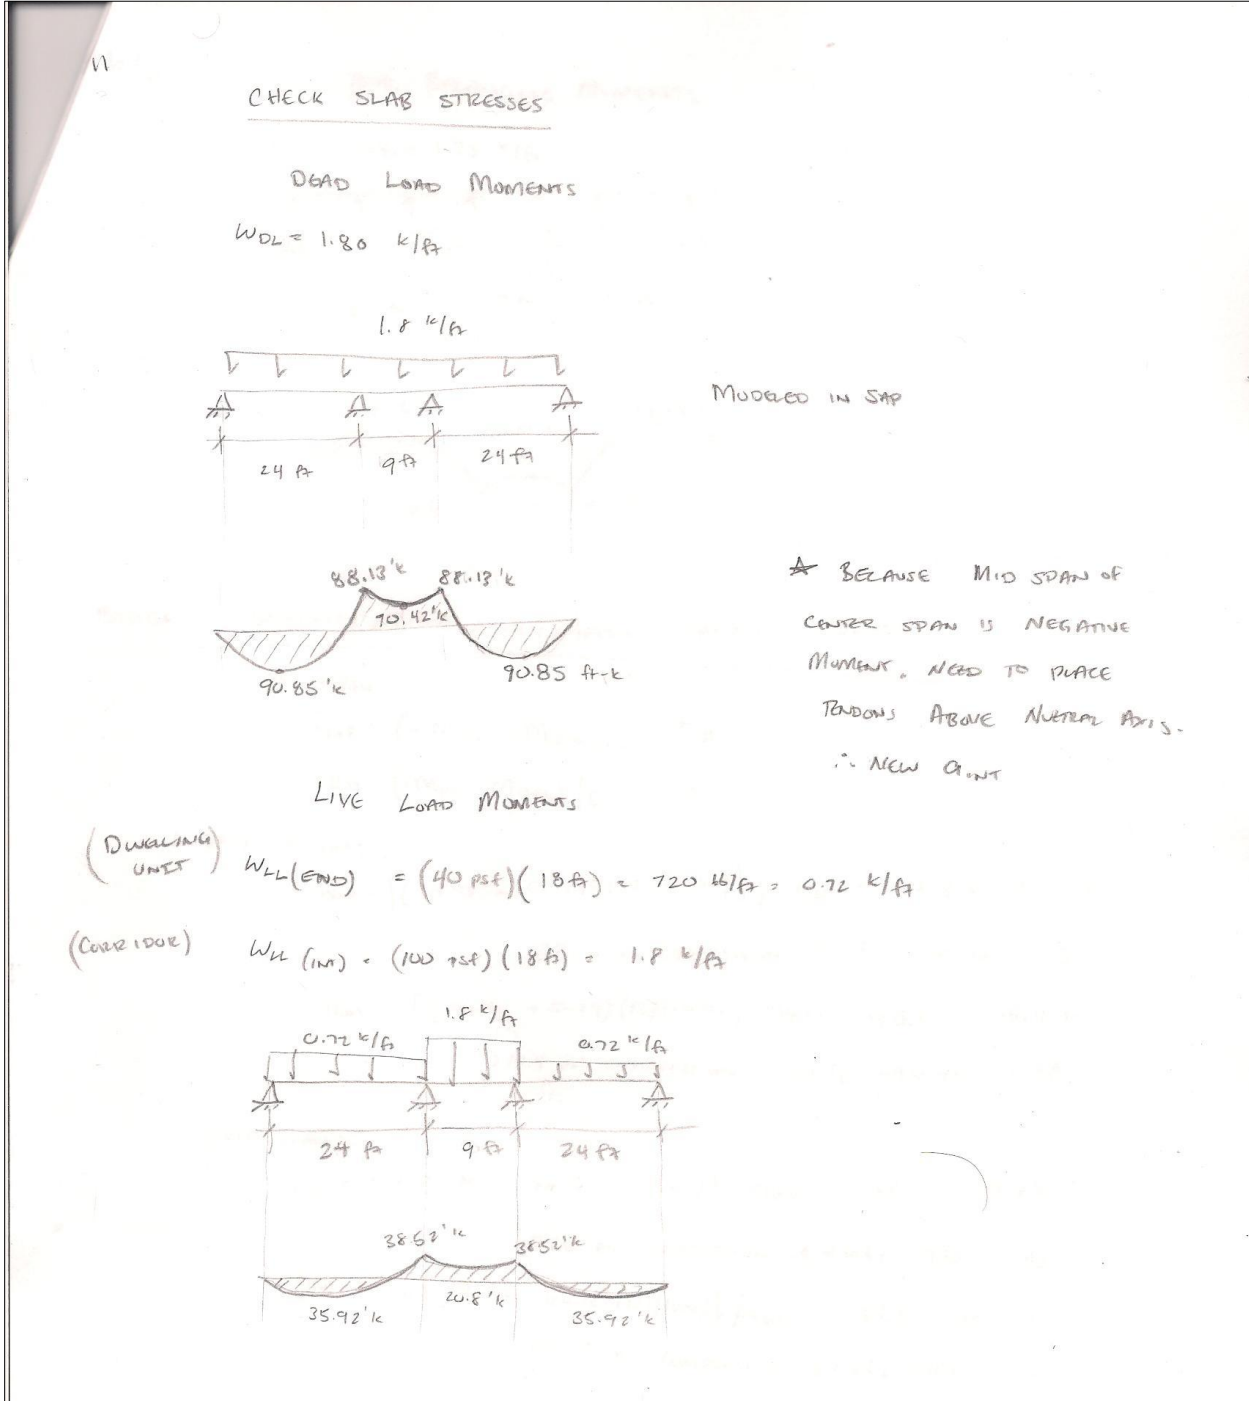 11
CHECK SLAB STRESSES
DEAD LOAD MOMENTS
WDL = 1.80 k/ft
1.8 k/ft
MODELED IN SAP
24 ft 9 ft 24 ft
88.13'k 88.13'k
70.42'k
90.85'k 90.85 ft-k
* BECAUSE MID SPAN OF
CENTER SPAN IS NEGATIVE
MOMENT. NEED TO PLACE
TENDONS ABOVE NUETRAL AXIS.
∴ NEW a,INT
LIVE LOAD MOMENTS
(DWELLING UNIT) WLL(END) = (40 psf)(18 ft) = 720 lb/ft = 0.72 k/ft
(CORRIDOR) WLL (INT) = (100 psf)(18 ft) = 1.8 k/ft
1.8 k/ft
0.72 k/ft 0.72 k/ft
24 ft 9 ft 24 ft
38.52'k 38.52'k
20.8'k
35.92'k 35.92'k